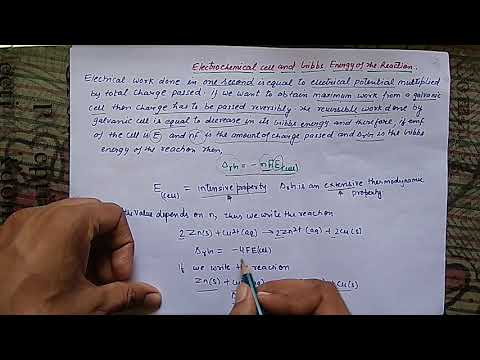 Electrochemical cell and Gibbs Energy of the Reaction.
Electrical work done in one second is equal to electrical potential multiplied
by total charge passed. If we want to obtain maximum work from a galvanic
cell then charge has to be passed reversibly. The reversible work done by
galvanic cell is equal to decrease in its Gibbs energy and therefore, if emf
of the cell is E, and nF is the amount of charge passed and ΔrG is the Gibbs
energy of the reaction then,
ΔrG = - nFE(cell)
E(cell) = intensive property ΔrG is an extensive thermodynamic
property
value depends on n, thus we write the reaction
2Zn(s) + Cu2+(aq) → 2Zn2+(aq) + 2Cu(s)
ΔrG = -4FE(cell)
If we write the reaction
Zn(s) + Cu(s)